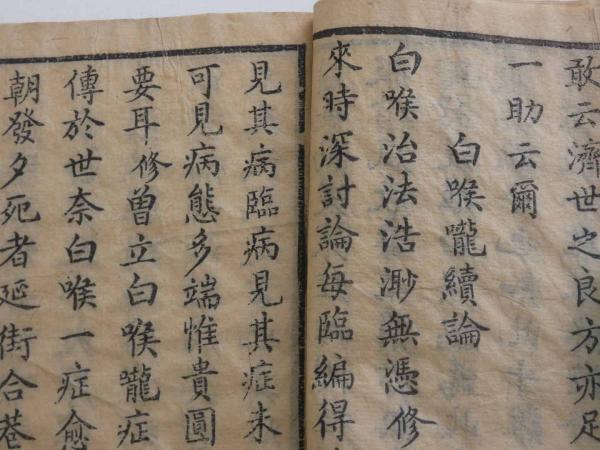 敢云濟世之良方亦足
一助云爾
白喉嚨續論
白喉治法浩渺無憑修
來時深討論每臨編得
見其病臨病見其症未
可見病態多端惟貴圓
要耳修曾立白喉嚨症
傳於世奈白喉一症愈
朝發夕死者延街合巷